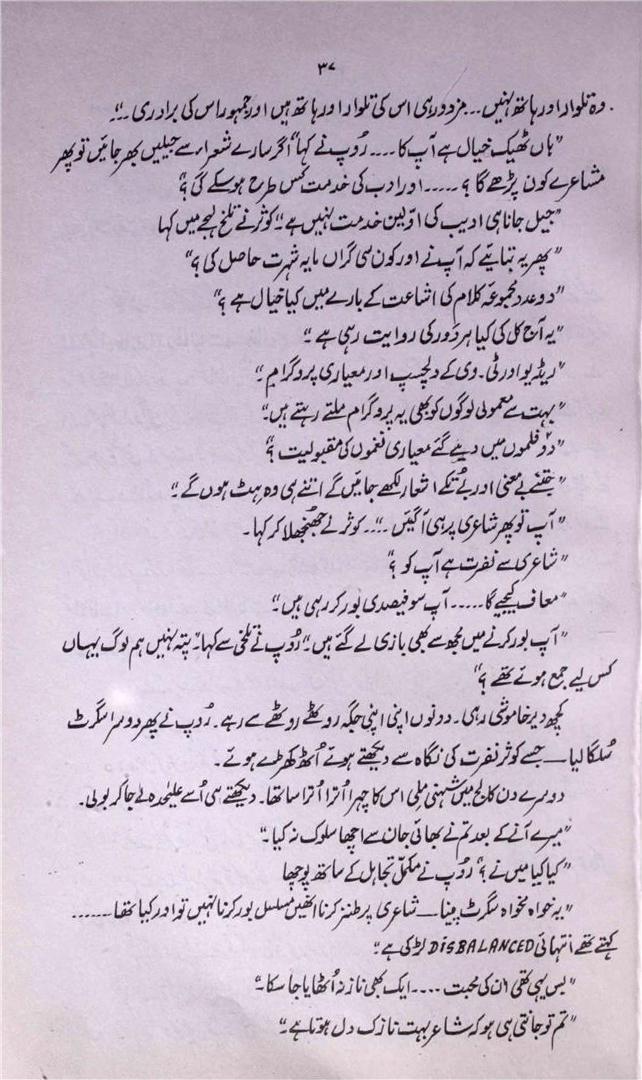 ۳۷
وہ تلوار اور ہاتھ نہیں... مزدور ہی اس کی تلوار اور ہاتھ ہیں اور جمہور اس کی برادری..“
”ہاں ٹھیک خیال ہے آپ کا.... رُوپ نے کہا“ اگر سارے شعراء سے جیلیں بھر جائیں تو پھر
مشاعرے کون پڑھے گا؟..... اور ادب کی خدمت کس طرح ہو سکے گی؟“
”جیل جانا ہی ادیب کی اوّلین خدمت نہیں ہے“ کوثر نے تلخ لہجے میں کہا
”پھر یہ بتایئے کہ آپ نے اور کون سی گراں مایہ شہرت حاصل کی؟“
”دو عدد مجموعۂ کلام کی اشاعت کے بارے میں کیا خیال ہے؟“
”یہ آج کل کی کیا ہر دَور کی روایت رہی ہے“
”ریڈیو اور ٹی۔وی کے دلچسپ اور معیاری پروگرام“
”بہت سے معمولی لوگوں کو بھی یہ پروگرام ملتے رہتے ہیں“
”دو فلموں میں دیئے گئے معیاری نغموں کی مقبولیت؟“
”جتنے بے معنی اور بے تُکے اشعار لکھے جائیں گے اتنے ہی وہ ہٹ ہوں گے“
”آپ تو پھر شاعری پر ہی آ گئیں...“ کوثر نے جھنجھلا کر کہا۔
”شاعری سے نفرت ہے آپ کو؟“
”معاف کیجیے گا..... آپ سو فیصدی بور کر رہی ہیں“
”آپ بور کرنے میں مجھ سے بھی بازی لے گئے ہیں“ رُوپ نے تلخی سے کہا ”پتہ نہیں ہم لوگ یہاں
کس لیے جمع ہوئے تھے؟“
کچھ دیر خاموشی رہی۔ دونوں اپنی اپنی جگہ روٹھے روٹھے سے رہے۔ رُوپ نے پھر دوسرا سگرٹ
سُلگا لیا — جسے کوثر نفرت کی نگاہ سے دیکھتے ہوئے اُٹھ کھڑے ہوئے۔
دوسرے دن کالج میں شہنی ملی اس کا چہرا اُترا اُترا سا تھا۔ دیکھتے ہی اُسے علیٰحدہ لے جا کر بولی۔
”میرے آنے کے بعد تم نے بھائی جان سے اچھا سلوک نہ کیا“
”کیا کیا میں نے؟“ رُوپ نے مکمل تجاہل کے ساتھ پوچھا
”یہ خواہ مخواہ سگرٹ پینا — شاعری پر طنز کرنا انھیں مسلسل بور کرنا نہیں تو اور کیا تھا......
کہتے تھے انتہائی DISBALANCED لڑکی ہے“
”بس یہی تھی ان کی محبت .... ایک بھی ناز نہ اُٹھایا جا سکا“
”تم تو جانتی ہی ہو کہ شاعر بہت نازک دل ہوتا ہے“